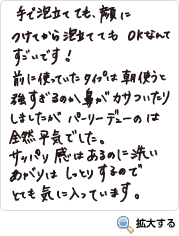 手で泡立てても、顔に
つけてから泡立てても OKなんて
すごいです!
前に使っていたタイプは朝使うと
強すぎるのか鼻がカサついたり
しましたが パーリーデューのは
全然平気でした。
サッパリ感はあるのに洗い
あがりは しっとりするので
とても気に入っています。
拡大する